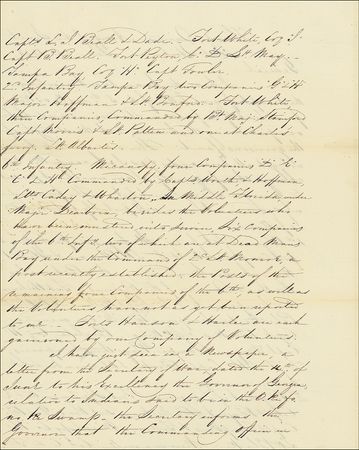 Capts L. J. Beall & Dade. Fort White, Coy I.
Capt B. Beall. Fort Peyton, Co D Lt May.
Tampa Bay Coy K Capt Fowler.
2d Infantry Tampa Bay two Companies G & K
Major Hoffman & Lt Penford. Fort White,
three Companies, Commanded by Bt Maj.
Capt Morris & Lt Patten and one at Charles
ferry. Lt Alburtis.
6th Infantry Micanopy four Companies D. E.
C & K Commanded by Capts & Hoffman,
Lts Cady & Wharton. In Middle Florida, under
Major Dearborn, besides the Volunteers who
have been mustered into service, Six Companies
of the 6th Infy, two of which are at Dead Mans
Bay under the Command of 2d Lt Monroe, a
post recently established, the Posts of the
remaining four Companies of the 6th, as well as
the Volunteers have not as yet been reported
to me. Forts Hanson & Harlee are each
garrisoned by one Company of Volunteers.
I have just seen in a Newspaper, a
letter from the Secretary of War, dated the 14th of
June to his excellency the Governor of Georgia,
relative to Indians said to be in the O.Ke.fe
no.ke Swamp. the Secretary informs the
Governor that the Commanding officer in